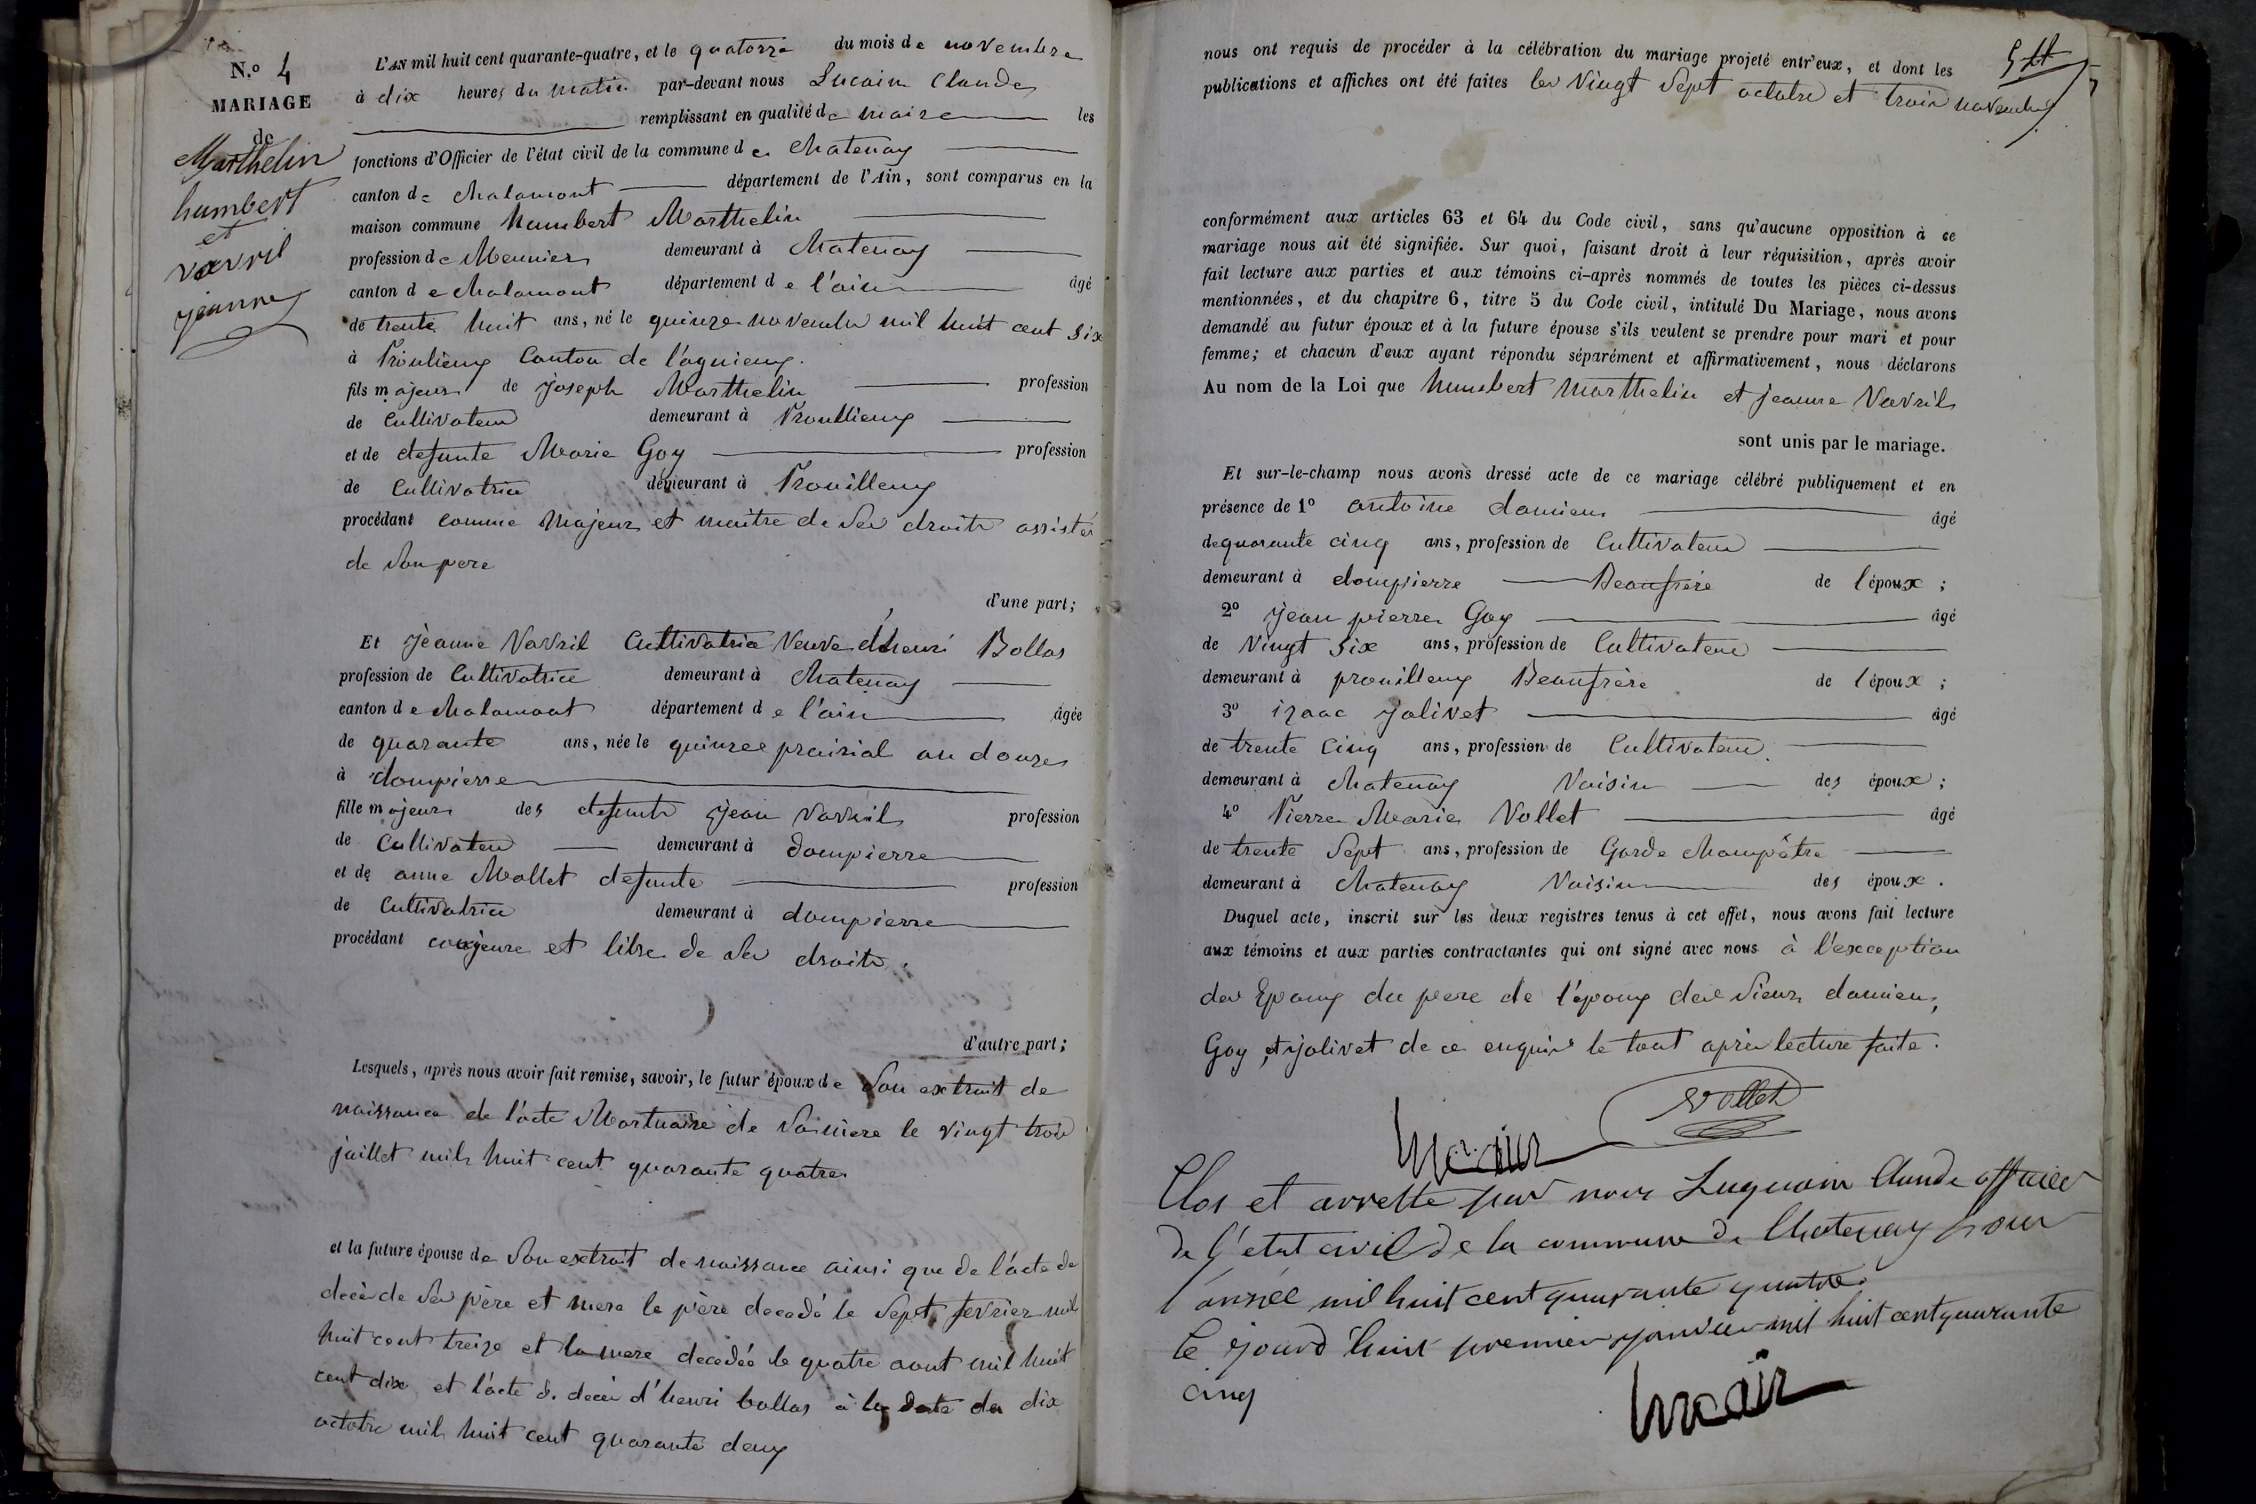 N.o 4
MARIAGE
de
Marthelin
humbert
et
vavril
jeanne
L'AN mil huit cent quarante-quatre, et le quatorze du mois de novembre
à dix heures du matin par-devant nous Lucain Claude
remplissant en qualité de maire les
fonctions d'Officier de l'état civil de la commune de Chatenay
canton de chalamont département de l'Ain, sont comparus en la
maison commune humbert Marthelin
profession de Meunier demeurant à Chatenay
canton de chalamont département de l'ain âgé
de trente huit ans, né le quinze novembre mil huit cent six
à Proulieux Canton de l'agnieux.
fils majeur de joseph Marthelin profession
de Cultivateur demeurant à Proullieux
et de defunte Marie Goy profession
de Cultivatrice demeurant à Prouilleux
procédant comme Majeur et maitre de ses droits assisté
de son pere
d'une part;
Et jeanne Vavril Cultivatrice Veuve d'henri Bollas
profession de Cultivatrice demeurant à Chatenay
canton de chalamont département de l'ain âgée
de quarante ans, née le quinze prairial an douze
à dompierre
fille majeure des defunts jean Vavril profession
de Cultivateur demeurant à dompierre
et de anne Mollet defunte profession
de Cultivatrice demeurant à dompierre
procédant majeure et libre de ses droits.
d'autre part;
Lesquels, après nous avoir fait remise, savoir, le futur époux de son extrait de
naissance de l'acte Mortuaire de sa mere le vingt trois
juillet mil huit cent quarante quatre
et la future épouse de son extrait de naissance ainsi que de l'acte de
decès de ses père et mere le père decedé le sept fevrier mil
huit cent treize et la mere decedée le quatre aout mil huit
cent dix et l'acte de decès d'henri bollas à la date du dix
octobre mil huit cent quarante deux
nous ont requis de procéder à la célébration du mariage projeté entr'eux, et dont les
publications et affiches ont été faites les Vingt sept octobre et trois novembre
conformément aux articles 63 et 64 du Code civil, sans qu'aucune opposition à ce
mariage nous ait été signifiée. Sur quoi, faisant droit à leur réquisition, après avoir
fait lecture aux parties et aux témoins ci-après nommés de toutes les pièces ci-dessus
mentionnées, et du chapitre 6, titre 5 du Code civil, intitulé Du Mariage, nous avons
demandé au futur époux et à la future épouse s'ils veulent se prendre pour mari et pour
femme; et chacun d'eux ayant répondu séparément et affirmativement, nous déclarons
Au nom de la Loi que humbert Marthelin et jeanne Vavril
sont unis par le mariage.
Et sur-le-champ nous avons dressé acte de ce mariage célébré publiquement et en
présence de 1o antoine damien âgé
de quarante cinq ans, profession de Cultivateur
demeurant à dompierre Beaufrère de l'époux;
2o jean pierre Goy âgé
de Vingt six ans, profession de Cultivateur
demeurant à prouilleux Beaufrère de l'époux;
3o izaac jolivet âgé
de trente cinq ans, profession de Cultivateur.
demeurant à Chatenay Voisin des époux;
4o Pierre Marie Vollet âgé
de trente sept ans, profession de Garde Champêtre
demeurant à Chatenay Voisin des époux.
Duquel acte, inscrit sur les deux registres tenus à cet effet, nous avons fait lecture
aux témoins et aux parties contractantes qui ont signé avec nous à l'exception
des Epoux du pere de l'époux des sieurs damien,
Goy et jolivet de ce enquis le tout après lecture faite.
Vollet
Lucain
Clos et arrette par nous Luquain Claude officier
de l'etat civil de la commune de Chatenay pour
l'année mil huit cent quarante quatre.
le jourd'huit premier janvier mil huit cent quarante
cinq
Lucain